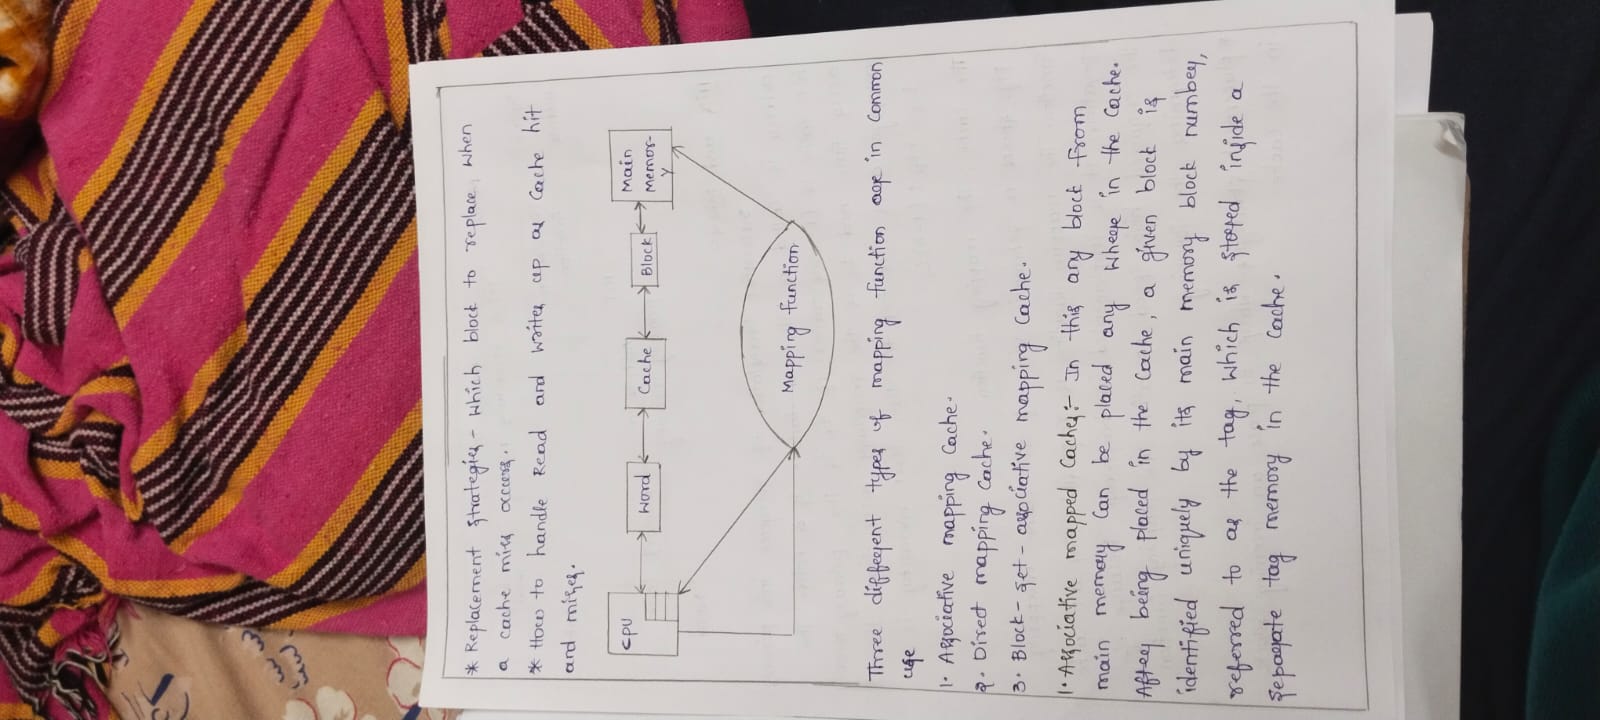 * Replacement strategies - which block to replace, when
a cache miss occurs.
* How to handle Read and writes up as Cache hit
and misses.
CPU
Word
Cache
Block
Main
Memor-
y
Mapping function
Three different types of mapping function are in common
use
1. Associative mapping Cache.
2. Direct mapping Cache.
3. Block - set - associative mapping Cache.
1. Associative mapped Caches:- In this any block from
main memory Can be placed any where in the Cache.
After being placed in the Cache, a given block is
identified uniquely by its main memory block number,
referred to as the tag, which is stored inside a
separate tag memory in the Cache.